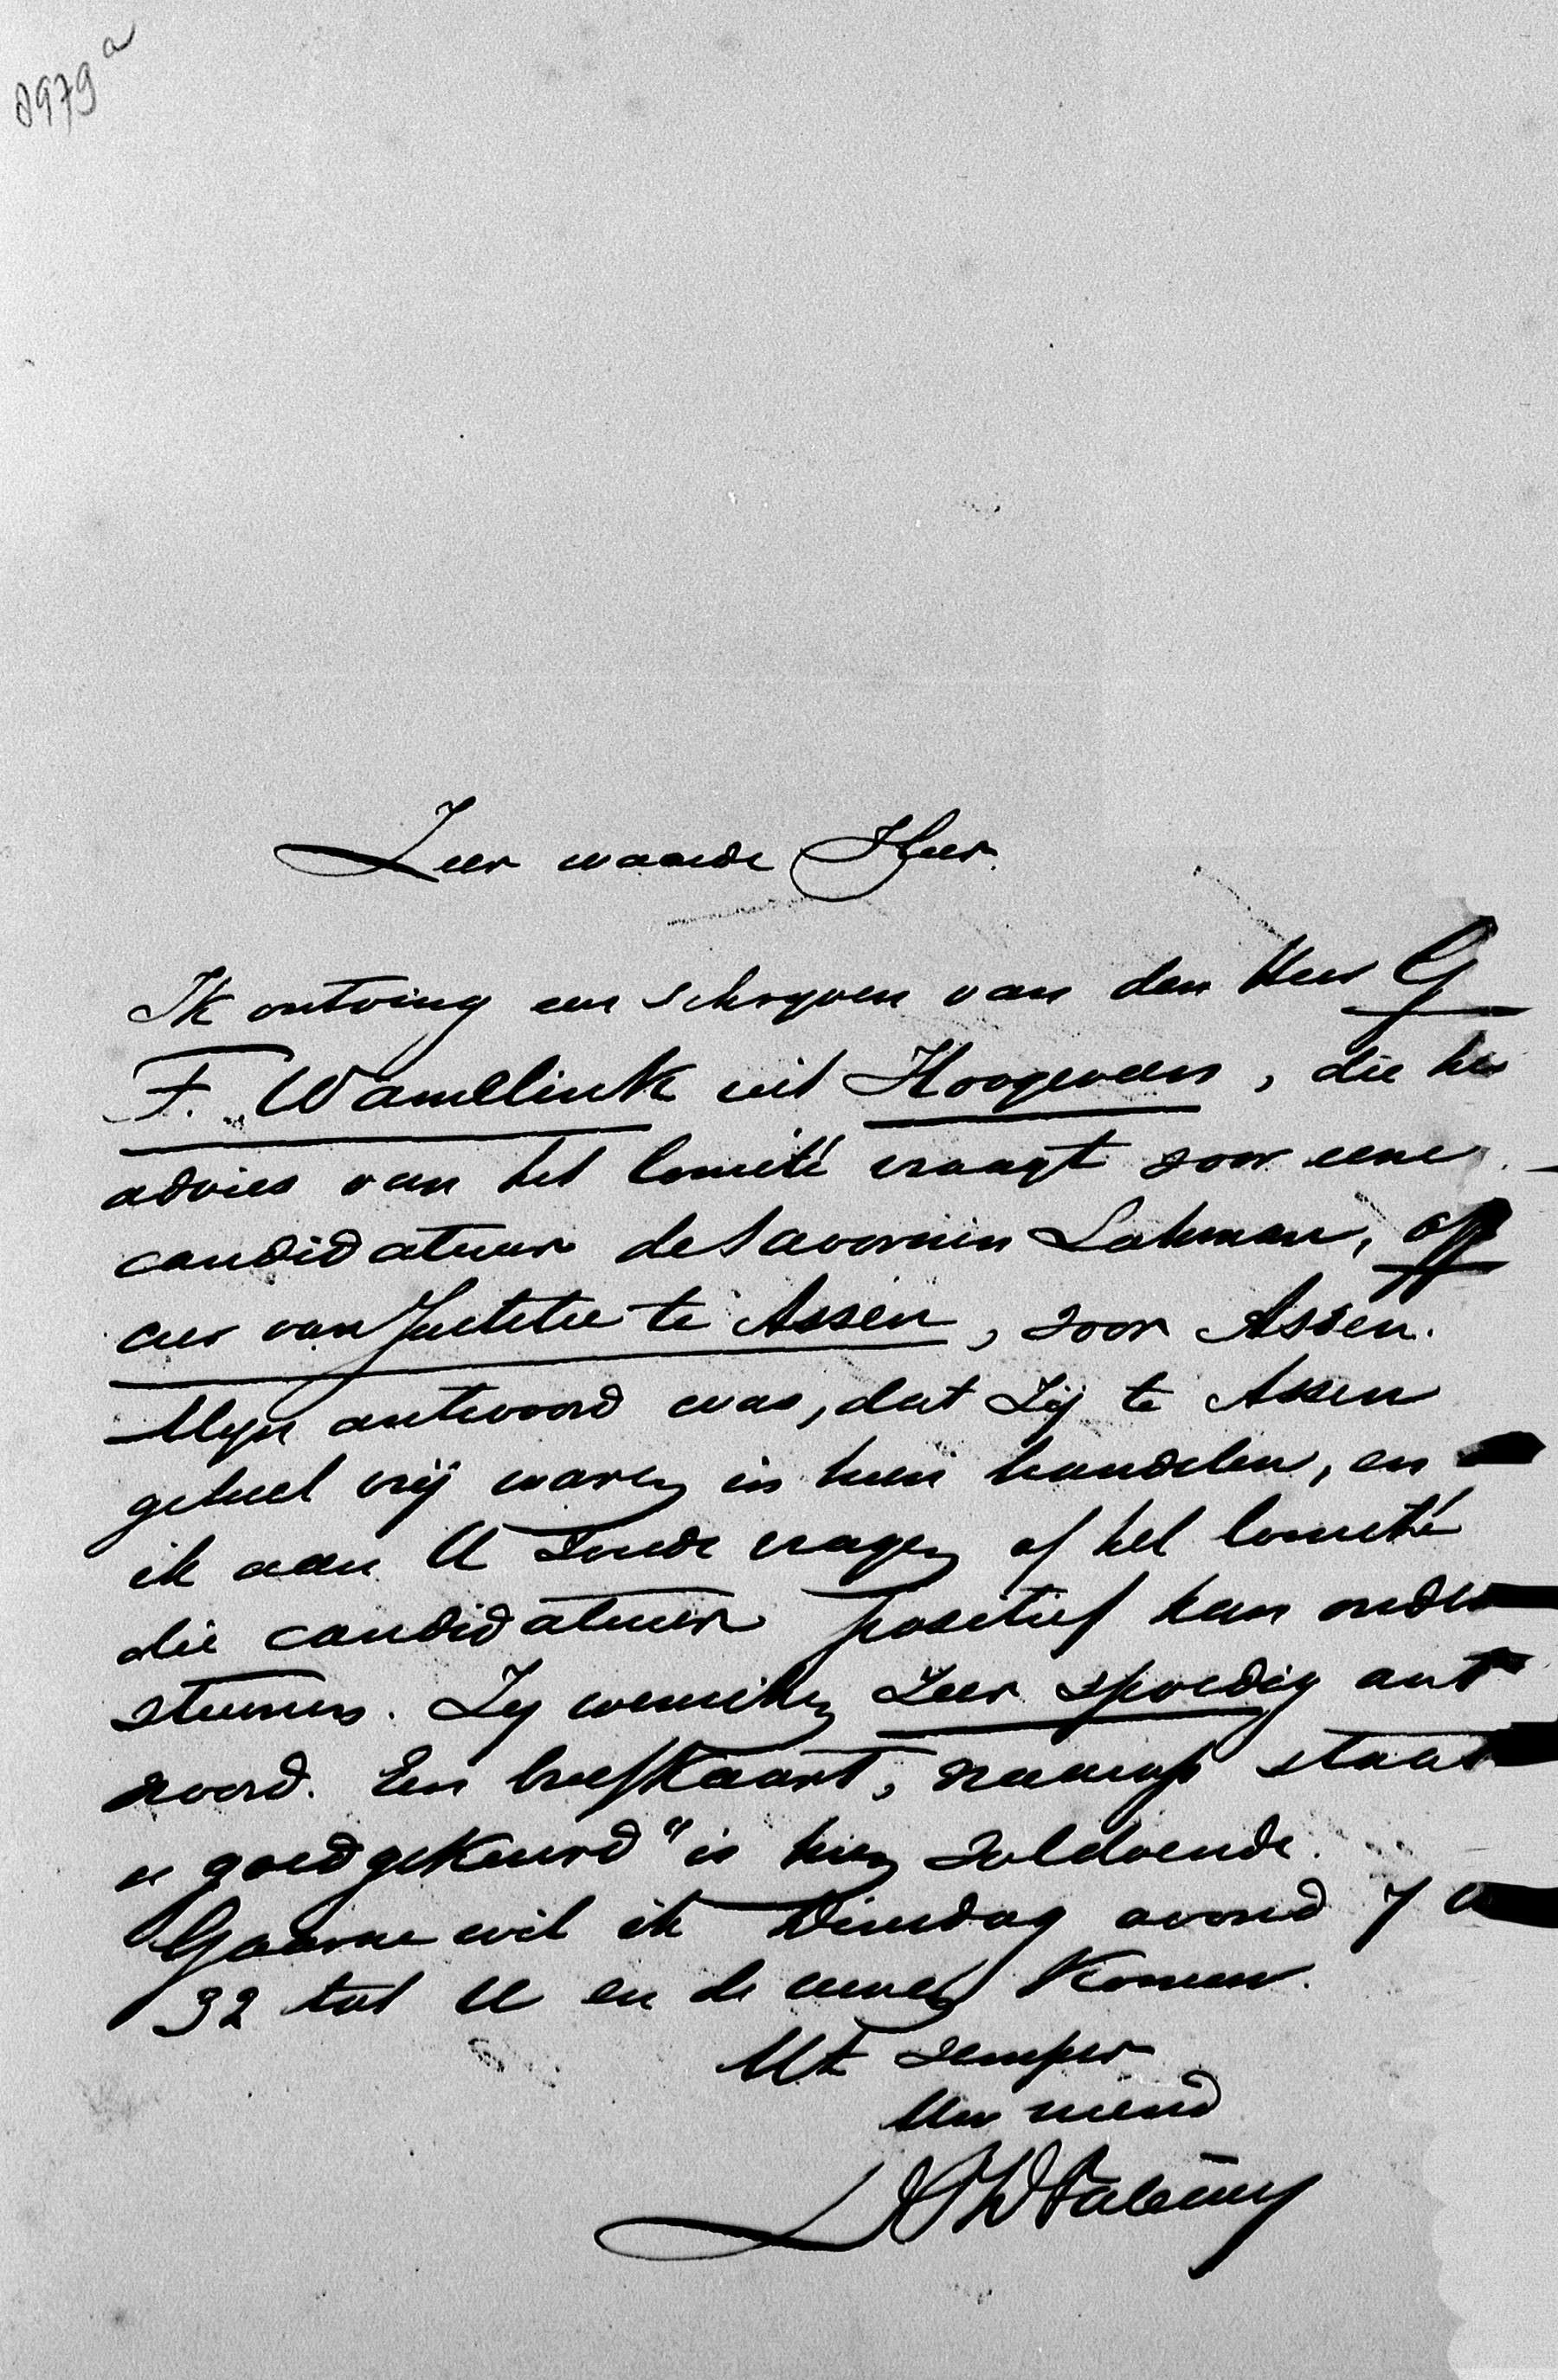 8979a
Zeer waarde Heer.
Ik ontving een schrijven van den Heer G
F. Wamelink uit Hoogeveen, die het
advies van het Comité vraagt voor eene
candidatuur de Savornin Lohman, offi
cier van Justitie te Assen, voor Assen.
Mijn antwoord was, dat Zij te Assen
geheel vrij waren in hun handelen, en
ik aan U zoude vragen of het Comité
die candidatuur positief kan onder
steunen. Zij wenschen zeer spoedig ant
woord. Een briefkaart, waarop staat
"goedgekeurd" is hun voldoende.
Gaarne wil ik Dinsdag avond 7 u
32 tot U en de uwen komen.
Ut semper
Uw vriend